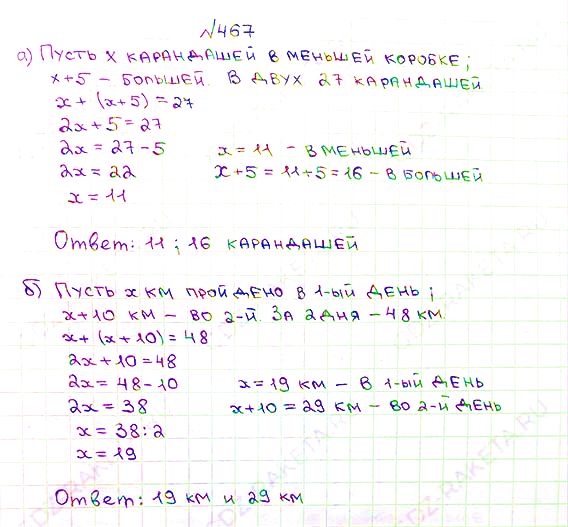 №467
а) Пусть x карандашей в меньшей коробке;
x+5 – большей. В двух 27 карандашей
x + (x+5) = 27
2x + 5 = 27
2x = 27 - 5 x = 11 – в меньшей
2x = 22 x+5 = 11+5 = 16 – в большей
x = 11
Ответ: 11; 16 карандашей
б) Пусть x км пройдено в 1-ый день;
x+10 км – во 2-й. За 2 дня – 48 км.
x + (x+10) = 48
2x + 10 = 48
2x = 48 - 10 x = 19 км – в 1-ый день
2x = 38 x+10 = 29 км – во 2-й день
x = 38 : 2
x = 19
Ответ: 19 км и 29 км
DZ-RAKETA.RU